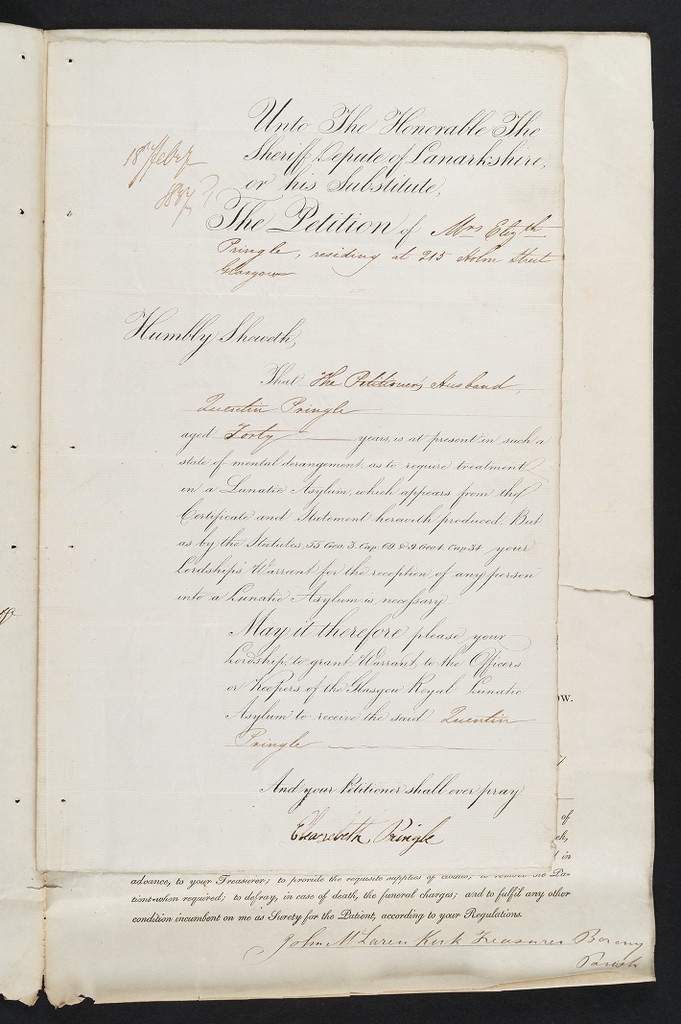 Unto The Honorable The
Sheriff Depute of Lanarkshire,
or his Substitute,
18th Feby
1837
The Petition of Mrs Elizth
Pringle, residing at 215 Holm Street
Glasgow
Humbly Sheweth,
That The Petitioner's Husband
Quentin Pringle
aged Forty years, is at present in such a
state of mental derangement, as to require treatment
in a Lunatic Asylum, which appears from the
Certificate and Statement herewith produced. But
as by the Statutes, 55 Geo. 3. Cap. 69 & 9 Geo 4. Cap 34 your
Lordship's Warrant for the reception of any person
into a Lunatic Asylum is necessary.
May it therefore please your
Lordship, to grant Warrant, to the Officers
or Keepers of the Glasgow Royal Lunatic
Asylum to receive the said Quentin
Pringle
And your Petitioner shall ever pray
Elizabeth Pringle
OW.
of
in
advance, to your Treasurer; to provide the requisite supplies of clothes; to remove the Pa-
tient when required; to defray, in case of death, the funeral charges; and to fulfil any other
condition incumbent on me as Surety for the Patient, according to your Regulations.
John McLaren Kirk Treasurer Barony
Parish